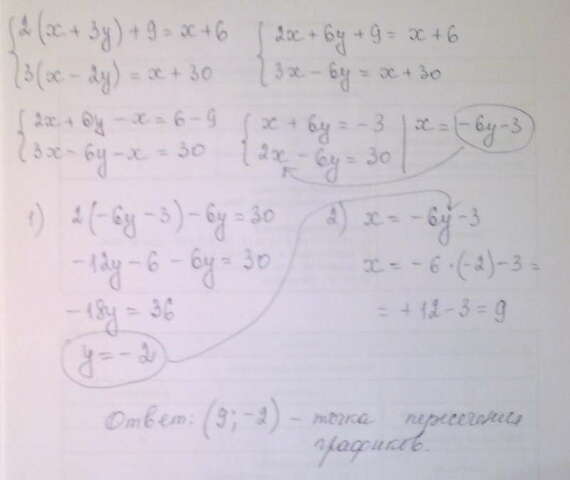 2(x + 3y) + 9 = x + 6
3(x - 2y) = x + 30
2x + 6y + 9 = x + 6
3x - 6y = x + 30
2x + 6y - x = 6 - 9
3x - 6y - x = 30
x + 6y = -3 | x = -6y - 3
2x - 6y = 30
1) 2(-6y - 3) - 6y = 30
-12y - 6 - 6y = 30
-18y = 36
y = -2
2) x = -6y - 3
x = -6 · (-2) - 3 =
= +12 - 3 = 9
Ответ: (9; -2) - точка пересечения
графиков.